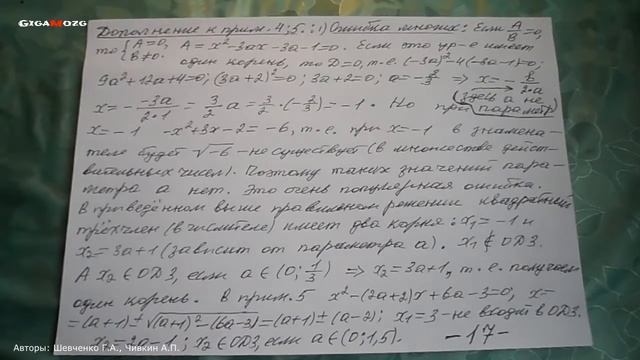 GIGAMOZG
Дополнение к прим. 4; 5.: 1) Ошибка многих: Если A/B = 0,
то {A=0, B≠0. A = x² - 3ax - 3a - 1 = 0. Если это ур-е имеет
один корень, то D = 0, т.е. (-3a)² - 4(-3a-1) = 0;
9a² + 12a + 4 = 0; (3a+2)² = 0; 3a + 2 = 0; a = -2/3 ⇒ x = - b/2·a
x = - -3a/2·1 = 3/2 a = 3/2 · (-2/3) = -1. Но при (здесь a не параметр)
x = -1 -x² + 3x - 2 = -6, т.е. при x = -1 в знамена-
теле будет √-6 - не существует (в множестве дейст-
вительных чисел). Поэтому таких значений пара-
метра a нет. Это очень популярная ошибка.
В приведённом выше правильном решении квадратный
трёхчлен (в числителе) имеет два корня: x₁ = -1 и
x₂ = 3a + 1 (зависит от параметра a). x₁ ∉ ОДЗ.
А x₂ ∈ ОДЗ, если a ∈ (0; 1/3) ⇒ x₂ = 3a + 1, т.е. получаем
один корень. В прим. 5 x² - (2a+2)x + 6a - 3 = 0, x =
= (a+1) ± √(a+1)² - (6a-3) = (a+1) ± (a-2); x₁ = 3 - не входит в ОДЗ.
x₂ = 2a - 1; x₂ ∈ ОДЗ, если a ∈ (0; 1,5). -17-
Авторы: Шевченко Г.А., Чивкин А.П.